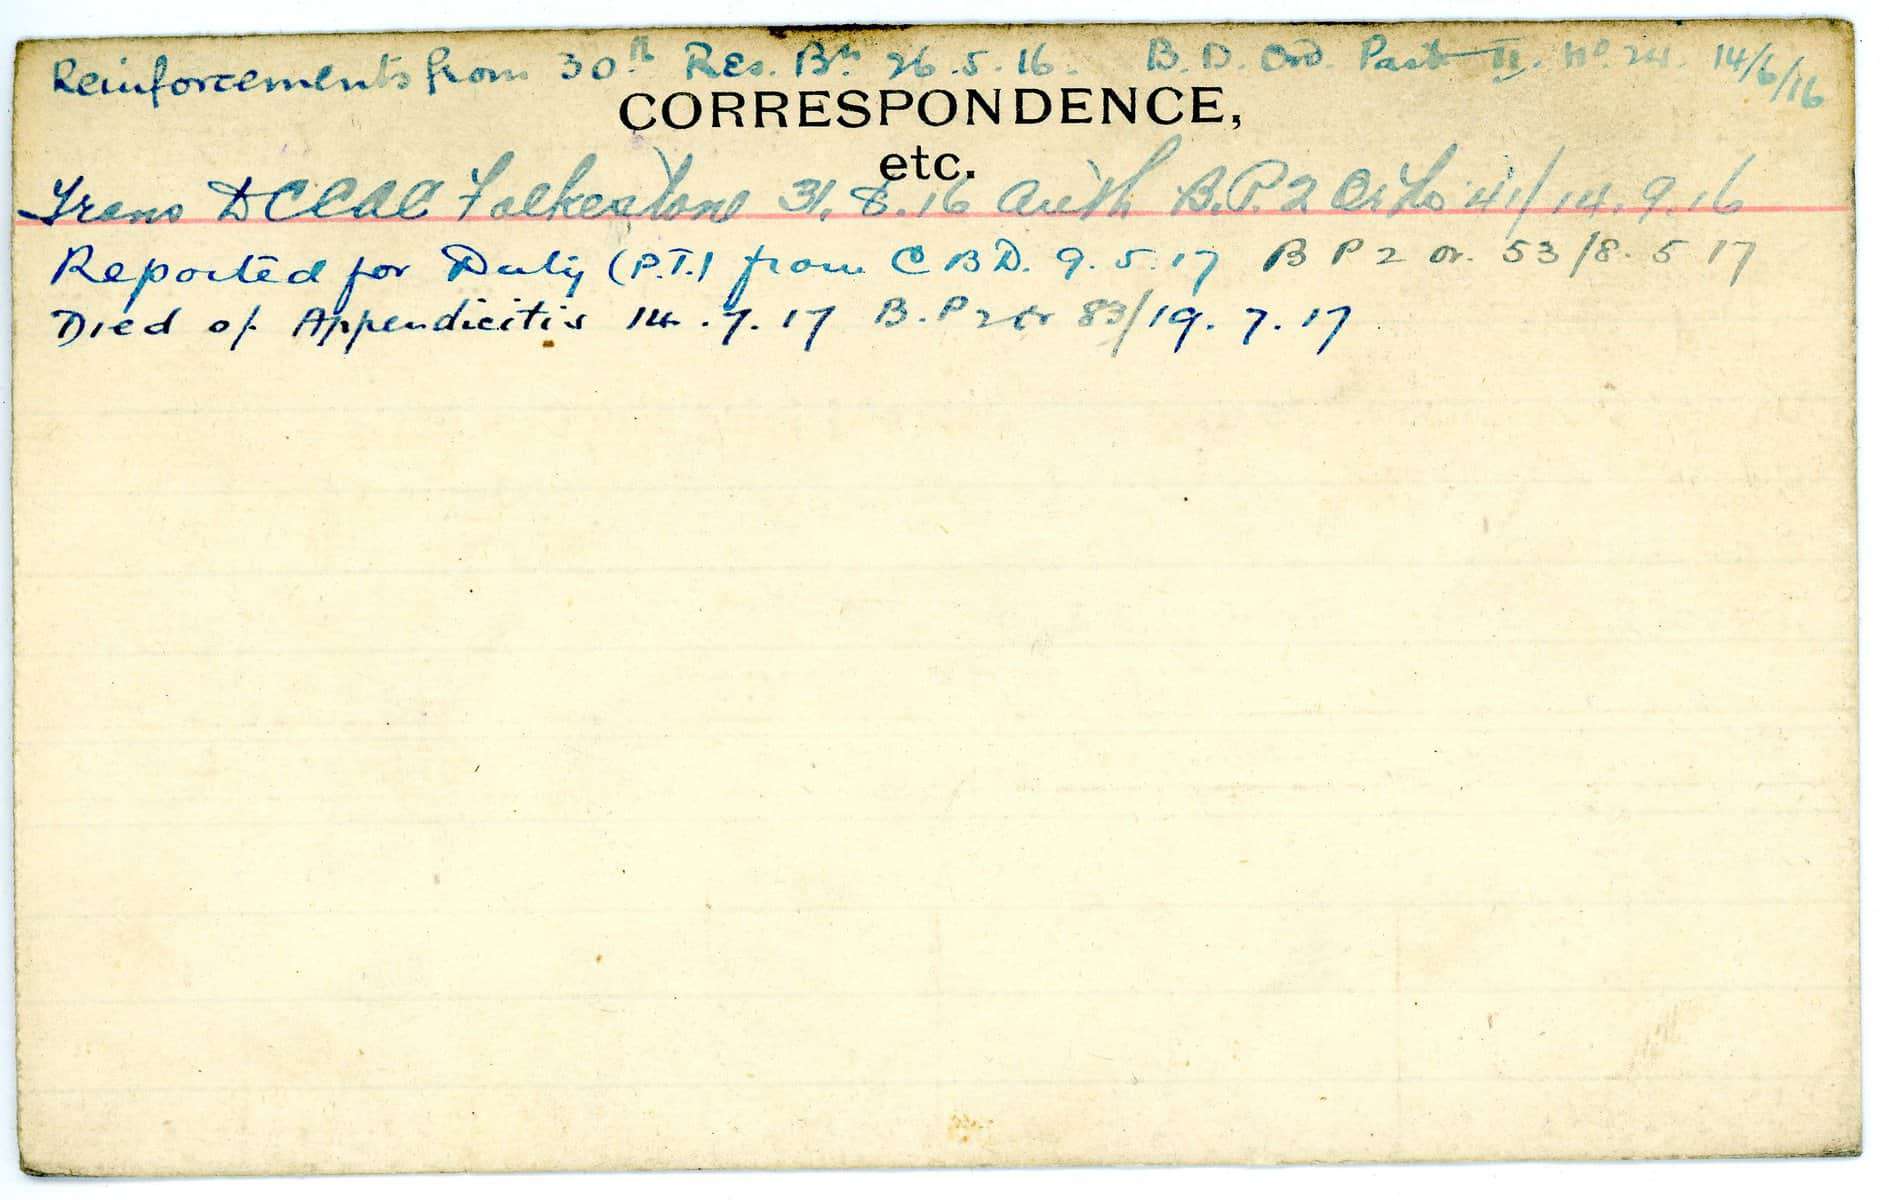 Reinforcements from 30th Res. Bn 26.5.16. B.D. Ord. Part II. No. 24. 14/6/16
CORRESPONDENCE,
etc.
Trans DCCAC Folkestone 31.8.16 Auth B.P.2 Or No 41/14.9.16
Reported for Duty (P.T.) from C B D. 9.5.17 B P 2 or. 53/8.5 17
Died of Appendicitis 14.7.17 B.P 2 or 83/19.7.17